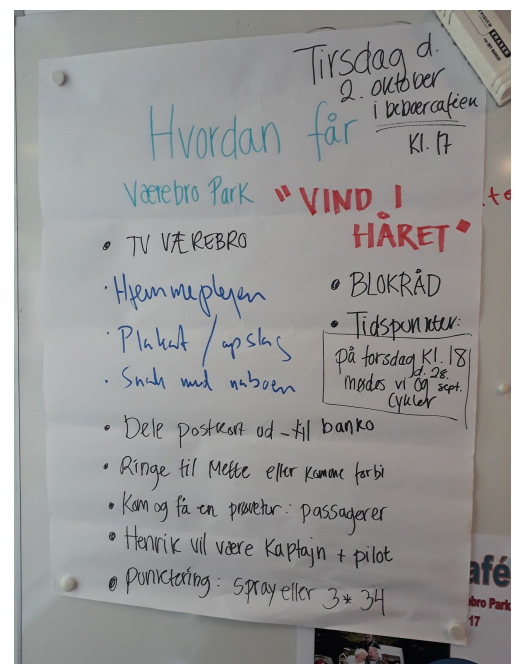 Tirsdag d.
2. oktober
i beboercafeen
Kl. 17
Hvordan får
Værebro Park "VIND I
HÅRET"
• TV VÆREBRO
· Hjemmeplejen
· Plakat / opslag
· Snak med naboen
• BLOKRÅD
• Tidspunkter:
på torsdag Kl. 18
d. 28. sept.
mødes vi og
cykler
• Dele postkort ud - til banko
• Ringe til Mette eller komme forbi
• Kom og få en prøvetur: passagerer
• Henrik vil være Kaptajn + pilot
• punktering: spray eller 3* 34
afé
bro Park
17